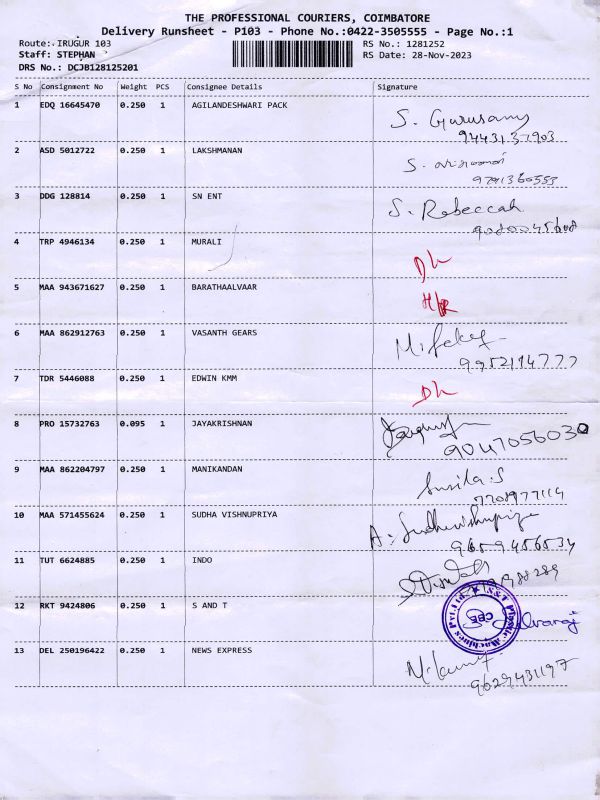 THE PROFESSIONAL COURIERS, COIMBATORE
Delivery Runsheet - P103 - Phone No.:0422-3505555 - Page No.:1
Route: IRUGUR 103 RS No.: 1281252
Staff: STEPHAN RS Date: 28-Nov-2023
DRS No.: DCJB128125201
S No Consignment No Weight PCS Consignee Details Signature
1 EDQ 16645470 0.250 1 AGILANDESHWARI PACK S. Gurusamy
9443137903
2 ASD 5012722 0.250 1 LAKSHMANAN S.
9791360553
3 DDG 128814 0.250 1 SN ENT S. Rebeccah
4 TRP 4946134 0.250 1 MURALI DL
5 MAA 943671627 0.250 1 BARATHAALVAAR
6 MAA 862912763 0.250 1 VASANTH GEARS
9952194777
7 TDR 5446088 0.250 1 EDWIN KMM DL
8 PRO 15732763 0.095 1 JAYAKRISHNAN
9047056030
9 MAA 862204797 0.250 1 MANIKANDAN Susila.S
7708977114
10 MAA 571455624 0.250 1 SUDHA VISHNUPRIYA A. Sudhavishnupriya
9659456534
11 TUT 6624885 0.250 1 INDO
12 RKT 9424806 0.250 1 S AND T S. Selvaraj
S&T Plastic Machines Pvt.Ltd. CBE
13 DEL 250196422 0.250 1 NEWS EXPRESS
9629431197